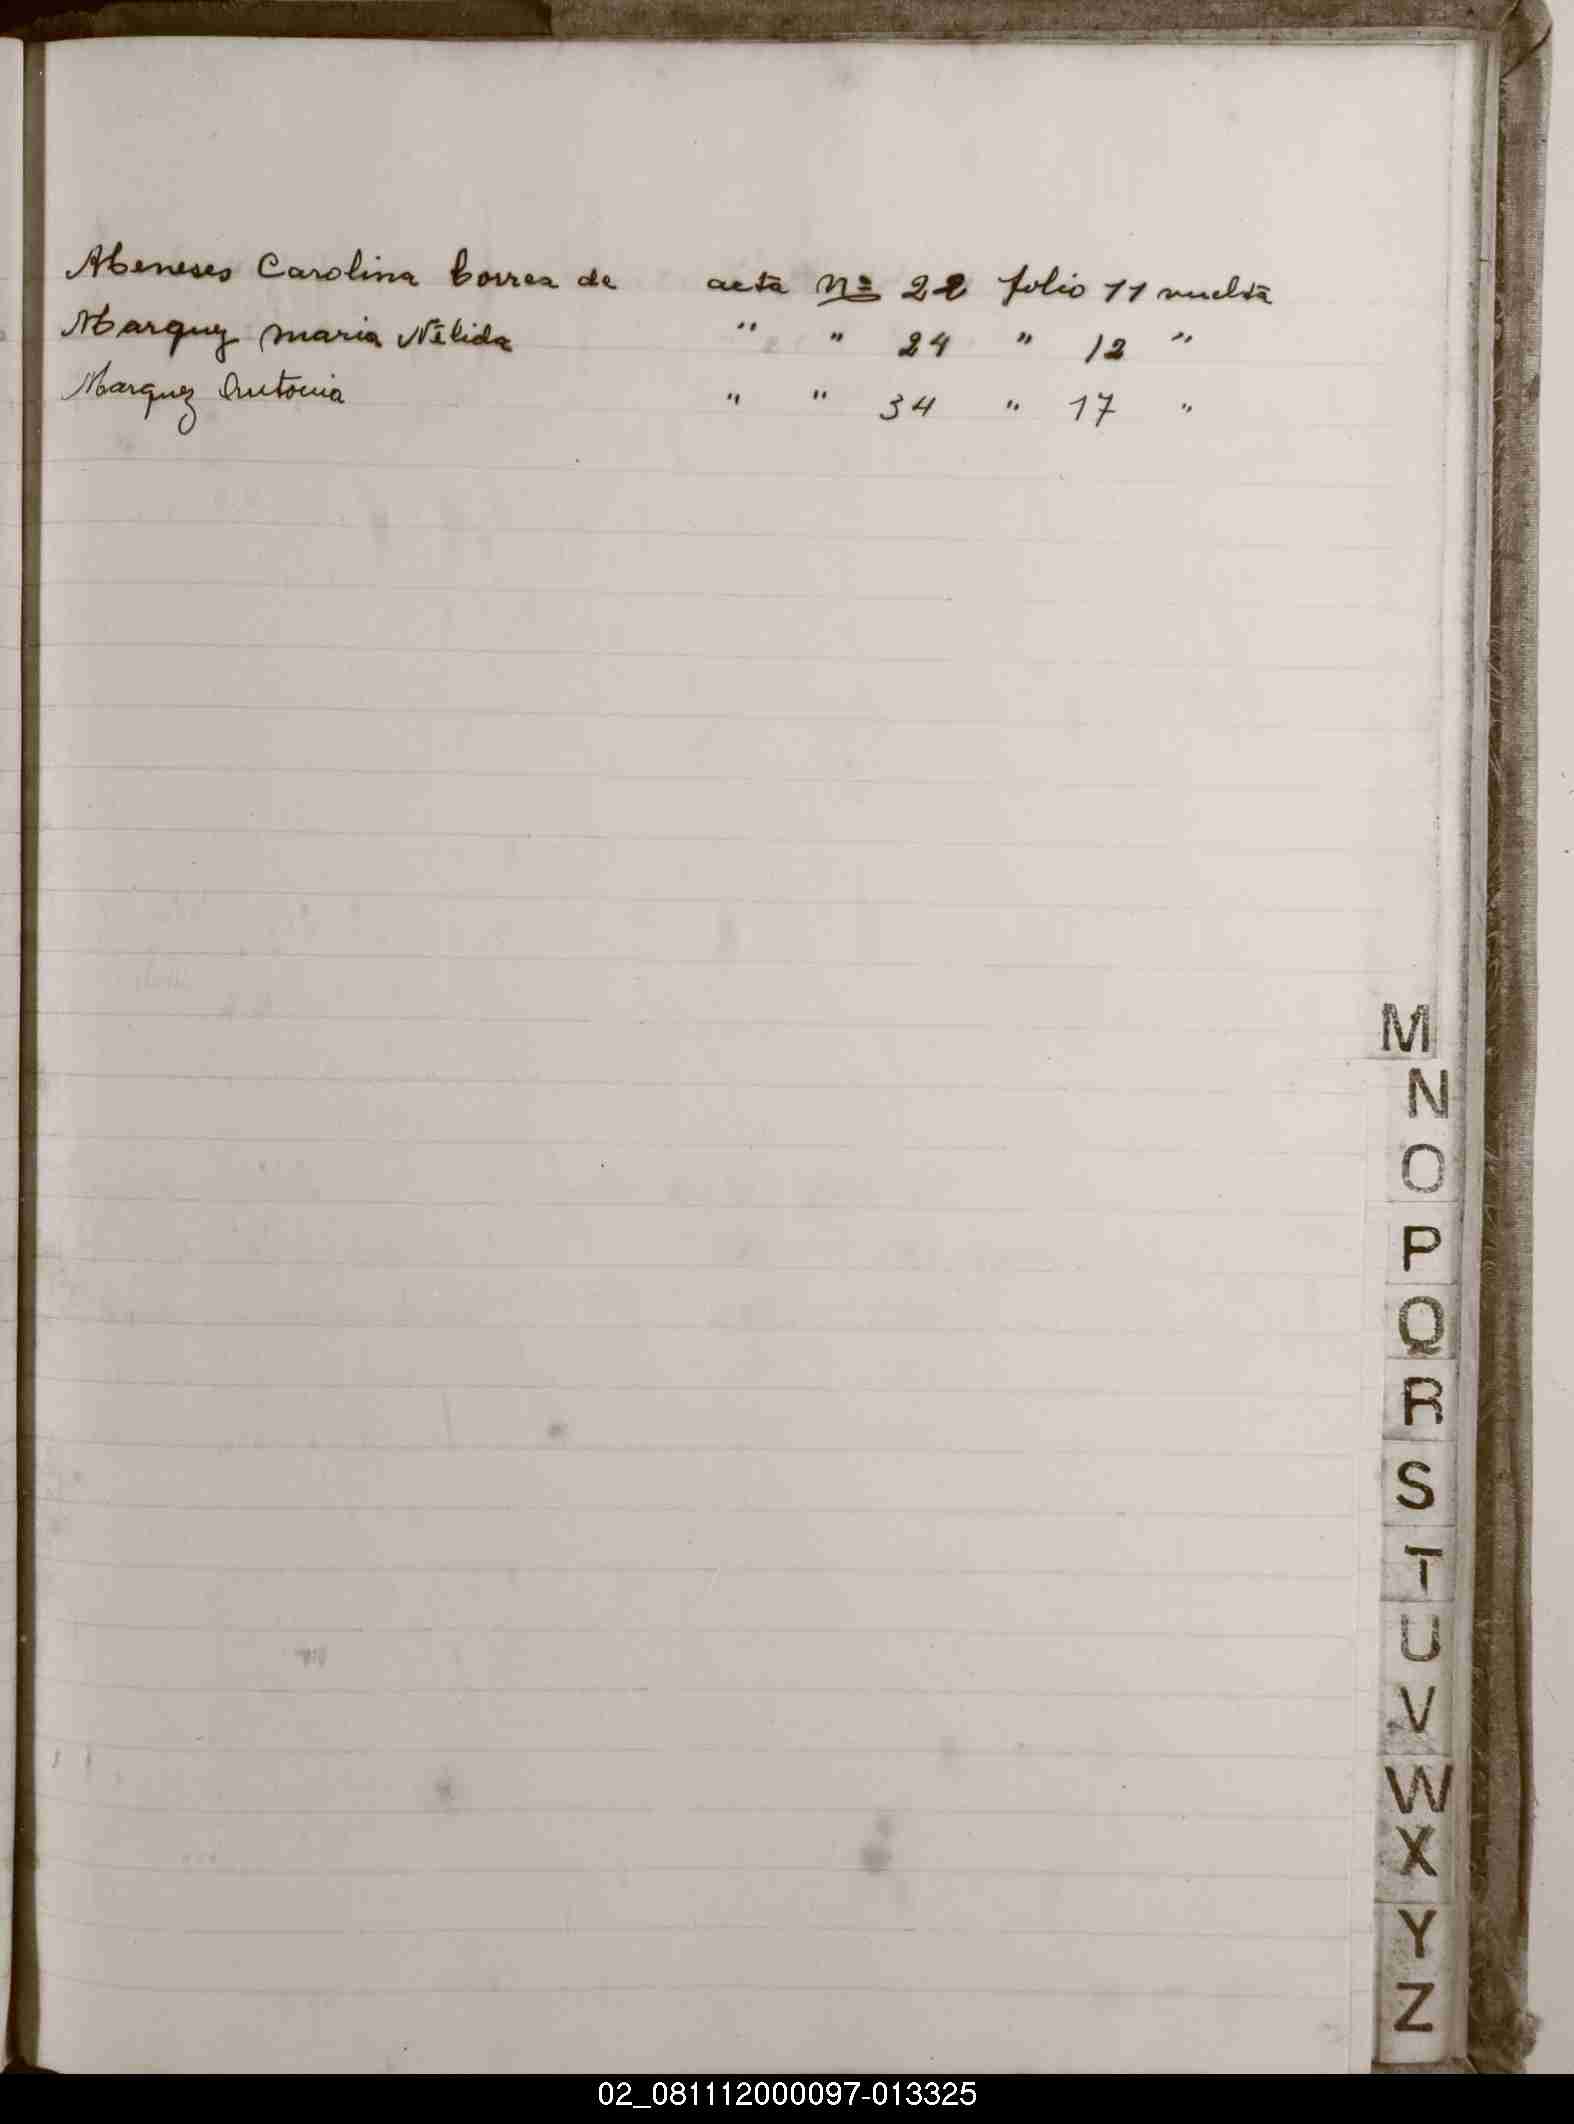 Meneses Carolina Correa de acta Nº 22 folio 11 vuelta
Marquez Maria Nélida " " 24 " 12 "
Marquez Antonia " " 34 " 17 "
M
N
O
P
Q
R
S
T
U
V
W
X
Y
Z
02_081112000097-013325